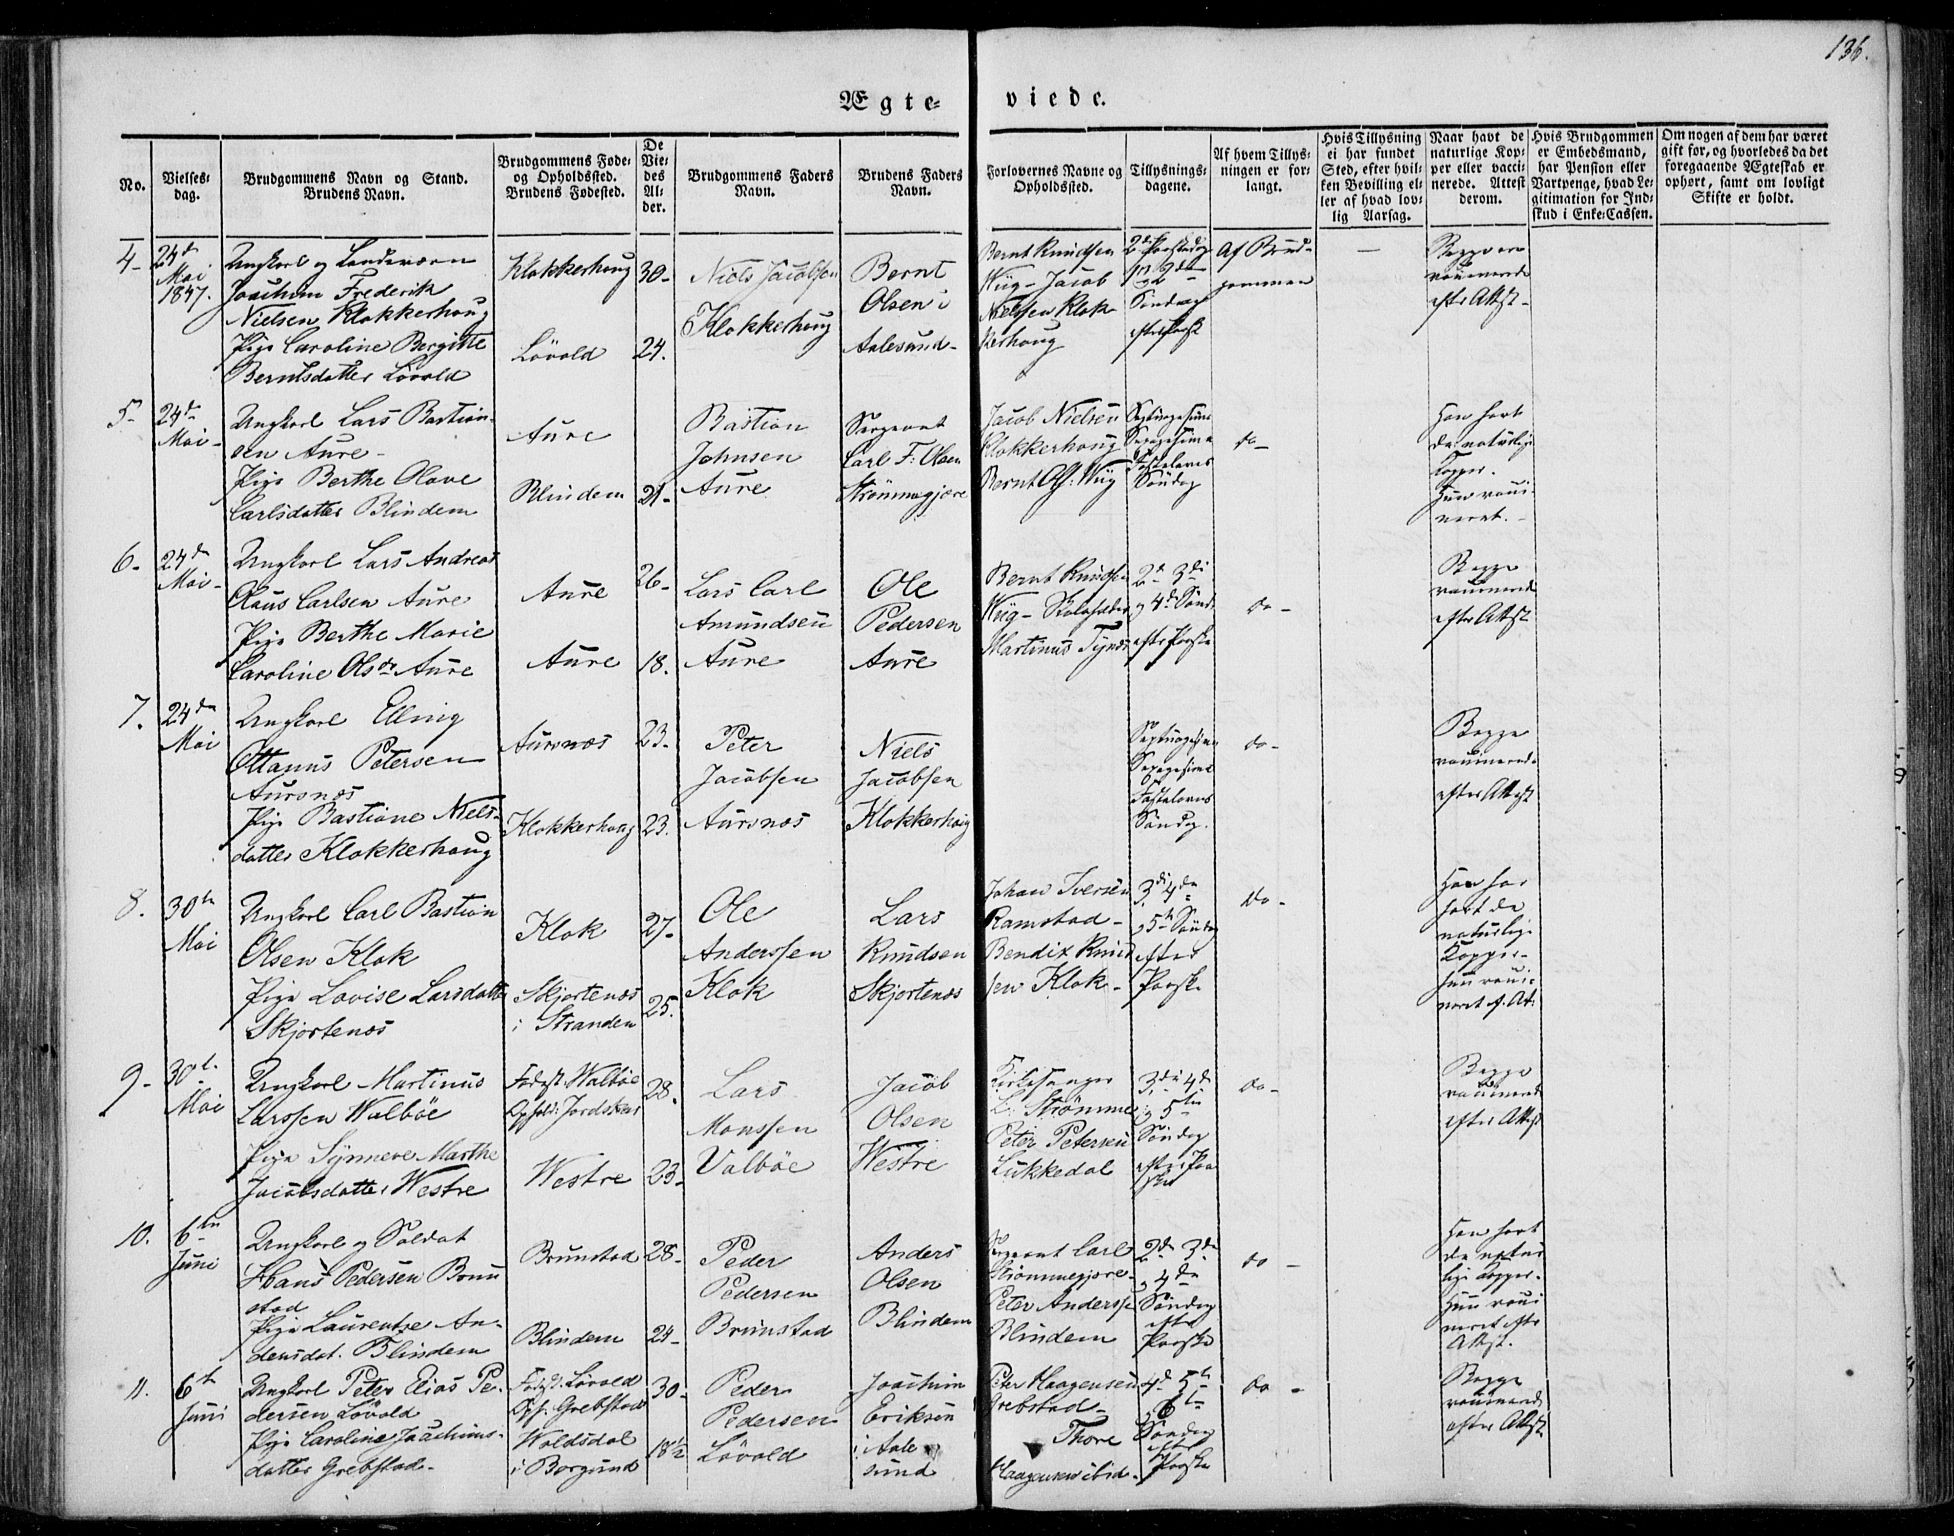 136.
Ægteviede.
No.
Vielses-
dag.
Brudgommens Navn og Stand.
Brudens Navn.
Brudgommens Føde-
og Opholdssted.
Brudens Fødested.
De
Vie-
des
Al-
der.
Brudgommens Faders
Navn.
Brudens Faders
Navn.
Forlovernes Navne og
Opholdssted.
Tillysnings-
dagene.
Af hvem Tillys-
ningen er for-
langt.
Hvis Tillysning
ei har fundet
Sted, efter hvil-
ken Bevilling el-
ler af hvad lov-
lig Aarsag.
Naar havt de
naturlige Kop-
per eller vacci-
nerede. Attest
derom.
Hvis Brudgommen
er Embedsmand,
har Pension eller
Vartpenge, hvad Le-
gitimation for Ind-
skud i Enke-Cassen.
Om nogen af dem har været
gift før, og hvorledes da det
foregaaende Ægteskab er
ophørt, samt om lovligt
Skifte er holdt.
4-
24de
Mai
1847.
Ungkarl og Landeværn
Joachim Frederik
Nielsen Klokkerhoug
Pige Caroline Bergitte
Berntsdatter Lövold
Klokkerhoug
Lövold
30-
24.
Niels Jacobsen
Klokkerhoug
Bernt
Olsen i
Aalesund-
Bernt Knudsen
Wiig- Jacob
Nielsen Klok-
kerhoug
2den Paaskedag
Söndag
efter Paaske
Af Brud-
gommen
—
Begge ere
vaccinerede
efter Attest-
5-
24de
Mai-
Ungkarl Lars Bastian-
sen Aure-
Pige Berthe Olave
Carlsdatter Blindem
Aure
Blindem
21-
Bastian
Johnsen
Aure
Sergeant
Carl F: Olsen
Strømmegjære
Jacob Nielsen
Klokkerhoug
Bernt Wiig
Septuagesima
Sexagesima
Fastelavns
Söndag
do-
Han havt
de naturlige
Kopper.
Hun vacci-
neret.-
6-
24de
Mai-
Ungkarl Lars Andreas
Olaus Carlsen Aure
Pige Berthe Marie
Caroline Olsdr Aure
Aure
Aure
26-
18.
Lars Carl
Amundsen
Aure
Ole
Pedersen
Aure
Bernt Knudsen
Wiig- Skoleholder
Martinus Tynæs
2de 3di
og 4de Sönd.
efter Paaske
do-
Begge
vaccinerede
efter Attest
7.
24de
Mai
Ungkarl Elling
Ottanus Petersen
Aursnæs
Pige Bastiane Niels-
datter Klokkerhoug
Aursnæs
Klokkerhoug
23-
23.
Peter
Jacobsen
Aursnæs
Niels
Jacobsen
Klokkerhoug
Septuagesima
Sexagesima
Fastelavns
Söndag.
do-
Begge
vaccinerede
efter Attest
8.
30te
Mai
Ungkarl Carl Bastian
Olsen Klok
Pige Lovise Larsdatter
Skjortenæs
Klok
Skjortenæs
i Stranden
27-
25.
Ole
Anderssen
Klok
Lars
Knudsen
Skjortenæs
Johan Iversen
Ramstad-
Bendix Knud-
sen Klok-
3di 4de
og 5te Söndag
efter
Paaske
do-
Han har
havt de
naturlige
Kopper-
hun vacci-
neret e. At.
9-
30te
Mai
Ungkarl Martinus
Larssen Walböe
Pige Synneve Marthe
Jacobsdatter Westre
Födest: Walböe
Ophold: Jordskar
Westre
28.
23-
Lars
Monssen
Valböe
Jacob
Olsen
Westre
Kirkesanger
L. Strømme
Peter Petersen
Lukkedal
3di 4de
og 5te
Söndag
efter Paa-
ske
do-
Begge
vaccinerede
efter Attest
10.
6te
Juni
Ungkarl og Soldat
Hans Pedersen Brun-
stad
Pige Laurentze An-
dersdat. Blindem
Brunstad
Blindem
28-
24-
Peder
Pedersen
Brunstad
Anders
Olsen
Blindem
Sergeant Carl
Strømmegjære-
Peter Anderss.
Blindem
2de 3di
og 4de
Söndag
efter
Paaske
do-
Han havt
de natur-
lige Kopper-
Hun vacci-
neret efter
Attest.
11.
6te
Juni
Ungkarl Peter Elias Pe-
dersen Lövold
Pige Caroline Joachims-
datter Grebstad-
Födest: Lövold
Oph: Grebstad
Woldsdal
i Borgund
30-
18½
Peder
Pedersen
Lövold
Joachim
Eriksen
i Aale-
sund
Peter Haagensen
Grebstad-
Thore
Haagensen ibid-
4de 5te
og 6te
Söndag
efter
Paaske
do-
Begge
vaccinerede
efter Attest